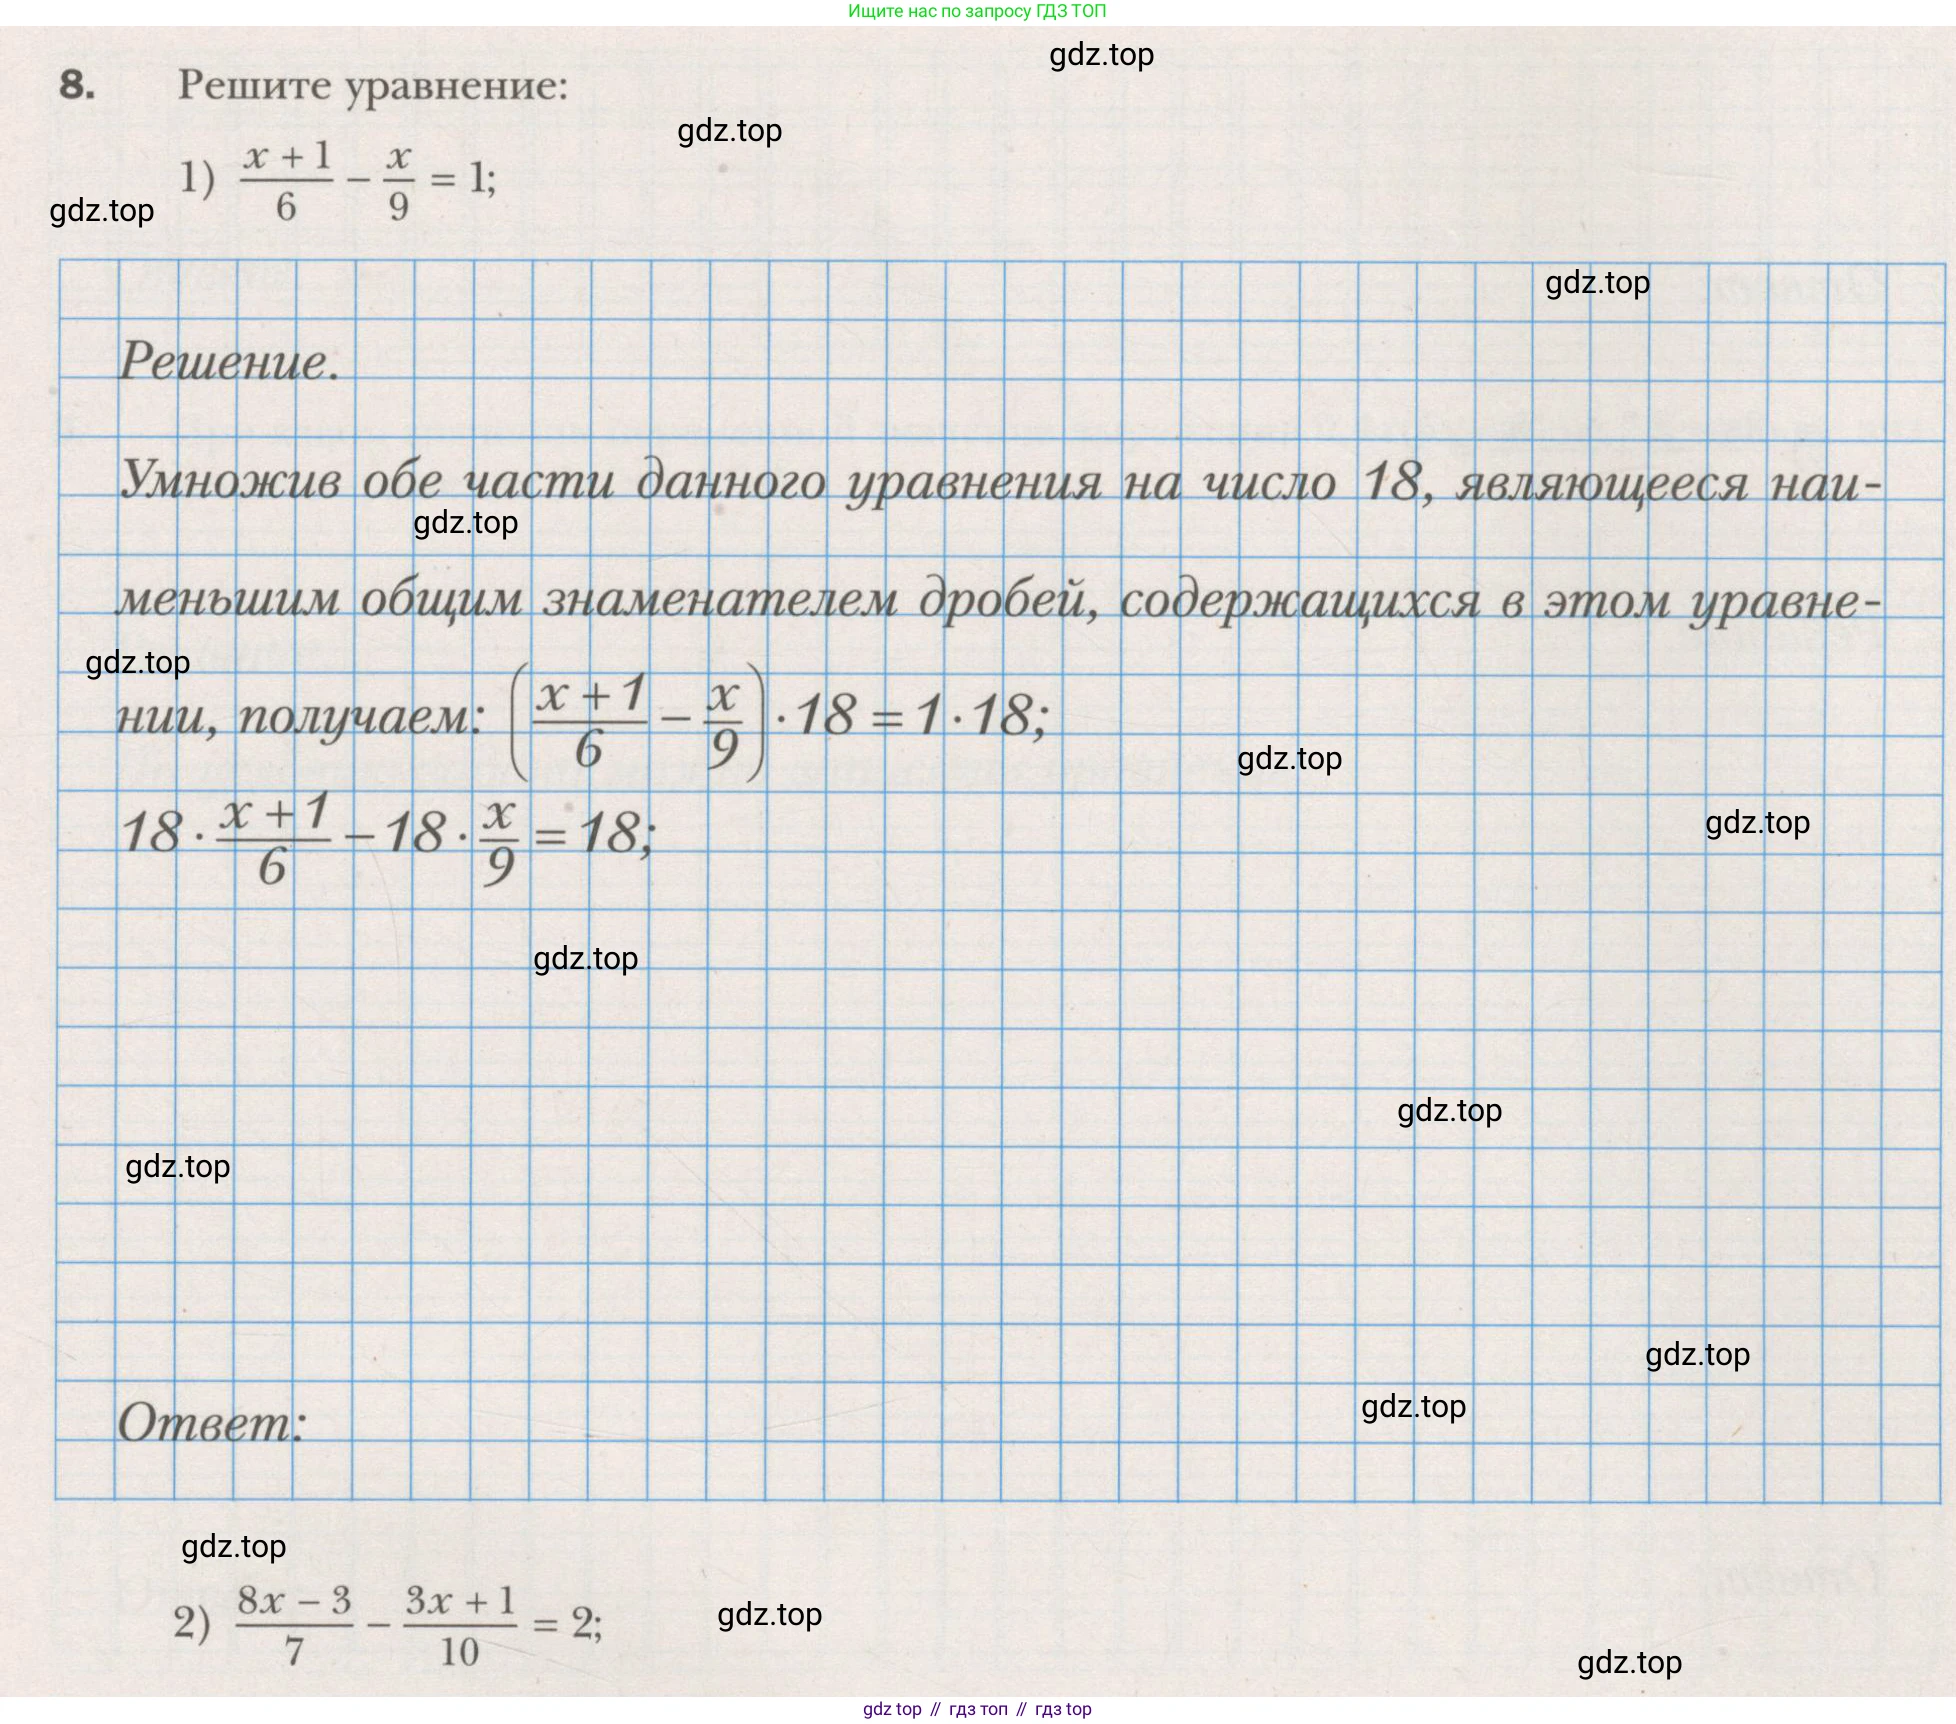 Ищите нас по запросу ГДЗ ТОП
gdz.top
8. Решите уравнение:
gdz.top
1) (x + 1)/6 − x/9 = 1;
gdz.top
gdz.top
Решение.
Умножив обе части данного уравнения на число 18, являющееся наи-
gdz.top
меньшим общим знаменателем дробей, содержащихся в этом уравне-
gdz.top
нии, получаем: ((x + 1)/6 − x/9) · 18 = 1 · 18;
gdz.top
gdz.top
18 · (x + 1)/6 − 18 · x/9 = 18;
gdz.top
gdz.top
gdz.top
gdz.top
gdz.top
Ответ:
gdz.top
2) (8x − 3)/7 − (3x + 1)/10 = 2;
gdz.top
gdz.top
gdz top // гдз топ // гдз top